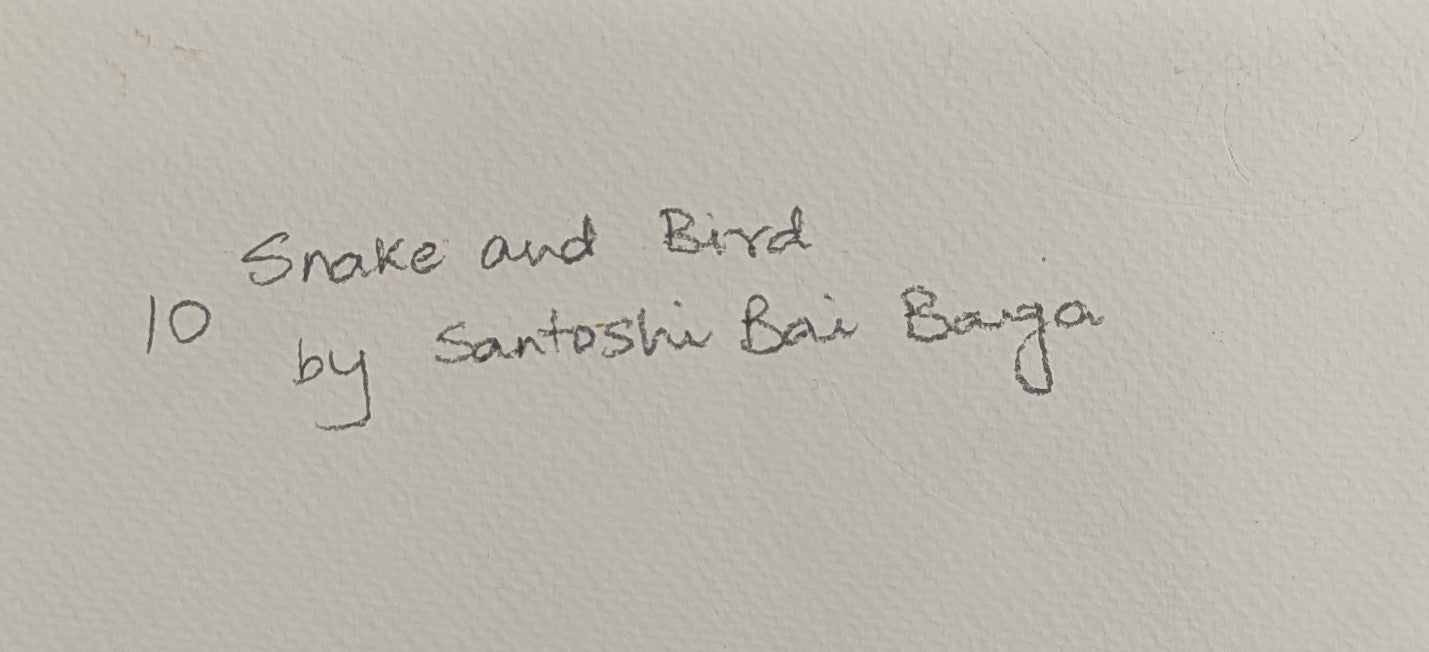 Snake and Bird
10 by Santoshi Bai Baiga